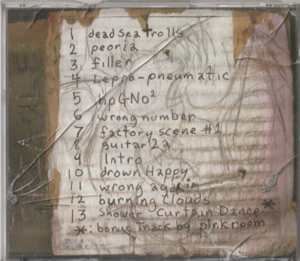 1 dead sea trolls
2 peoria
3 filler
4 Lepro-pneumatic
5 hpG-NO²
6 wrong number
7 factory scene #1
8 guitar 2a
9 Intro
10 drown Happy
11 wrong again
12 burning clouds *
13 Shower Curtain Dance *
*: bonus track by pinkroom